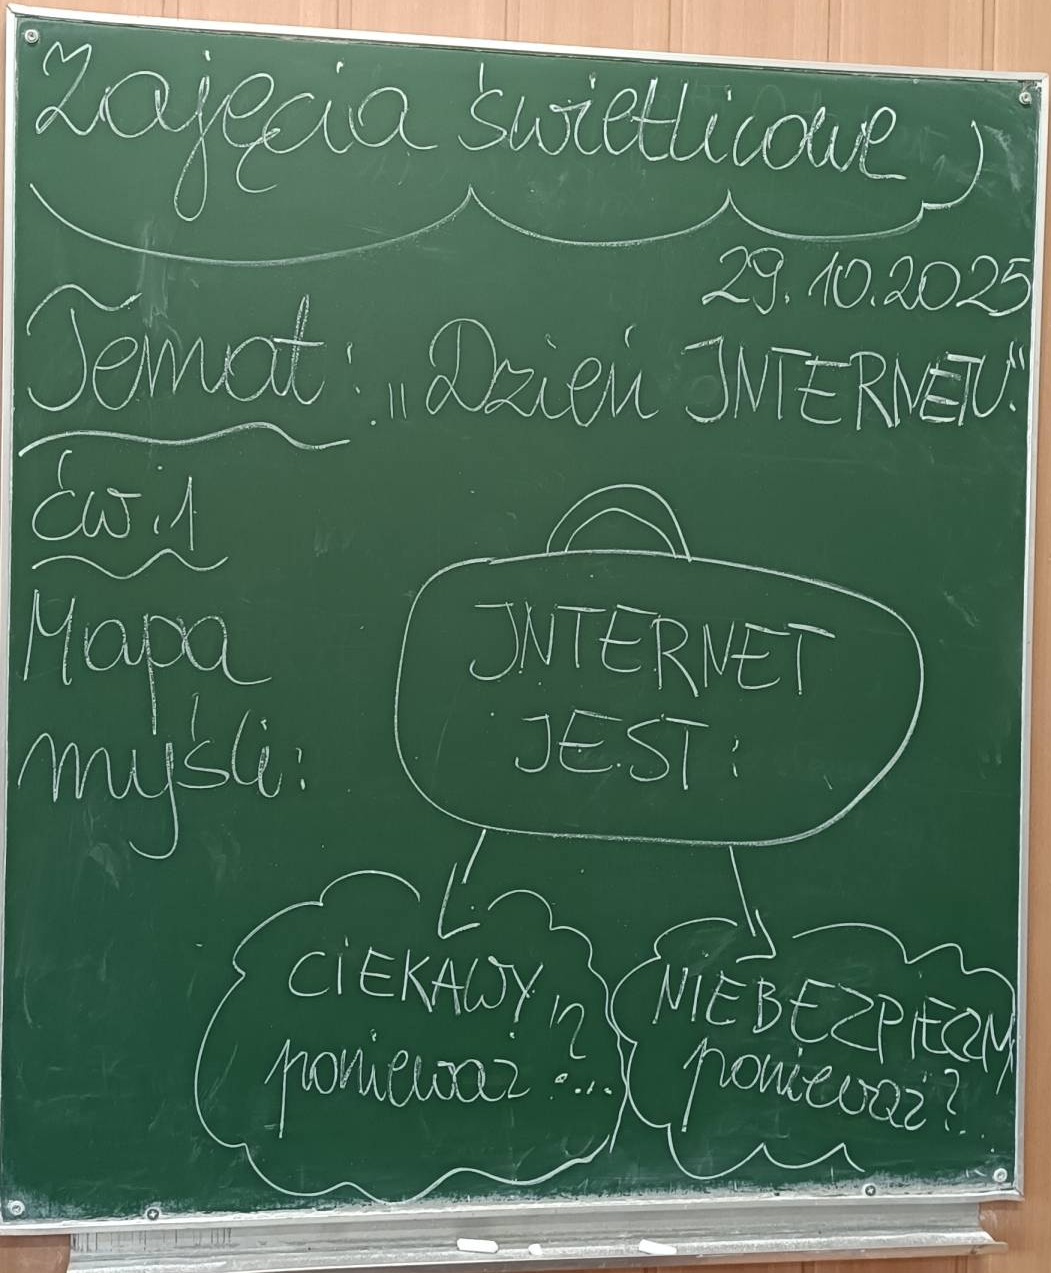 Zajęcia świetlicowe
29.10.2025
Temat: „Dzień INTERNETU."
Ćw.1
Mapa
myśli:
INTERNET
JEST:
CIEKAWY,
ponieważ?...
NIEBEZPIECZNY,
ponieważ?...